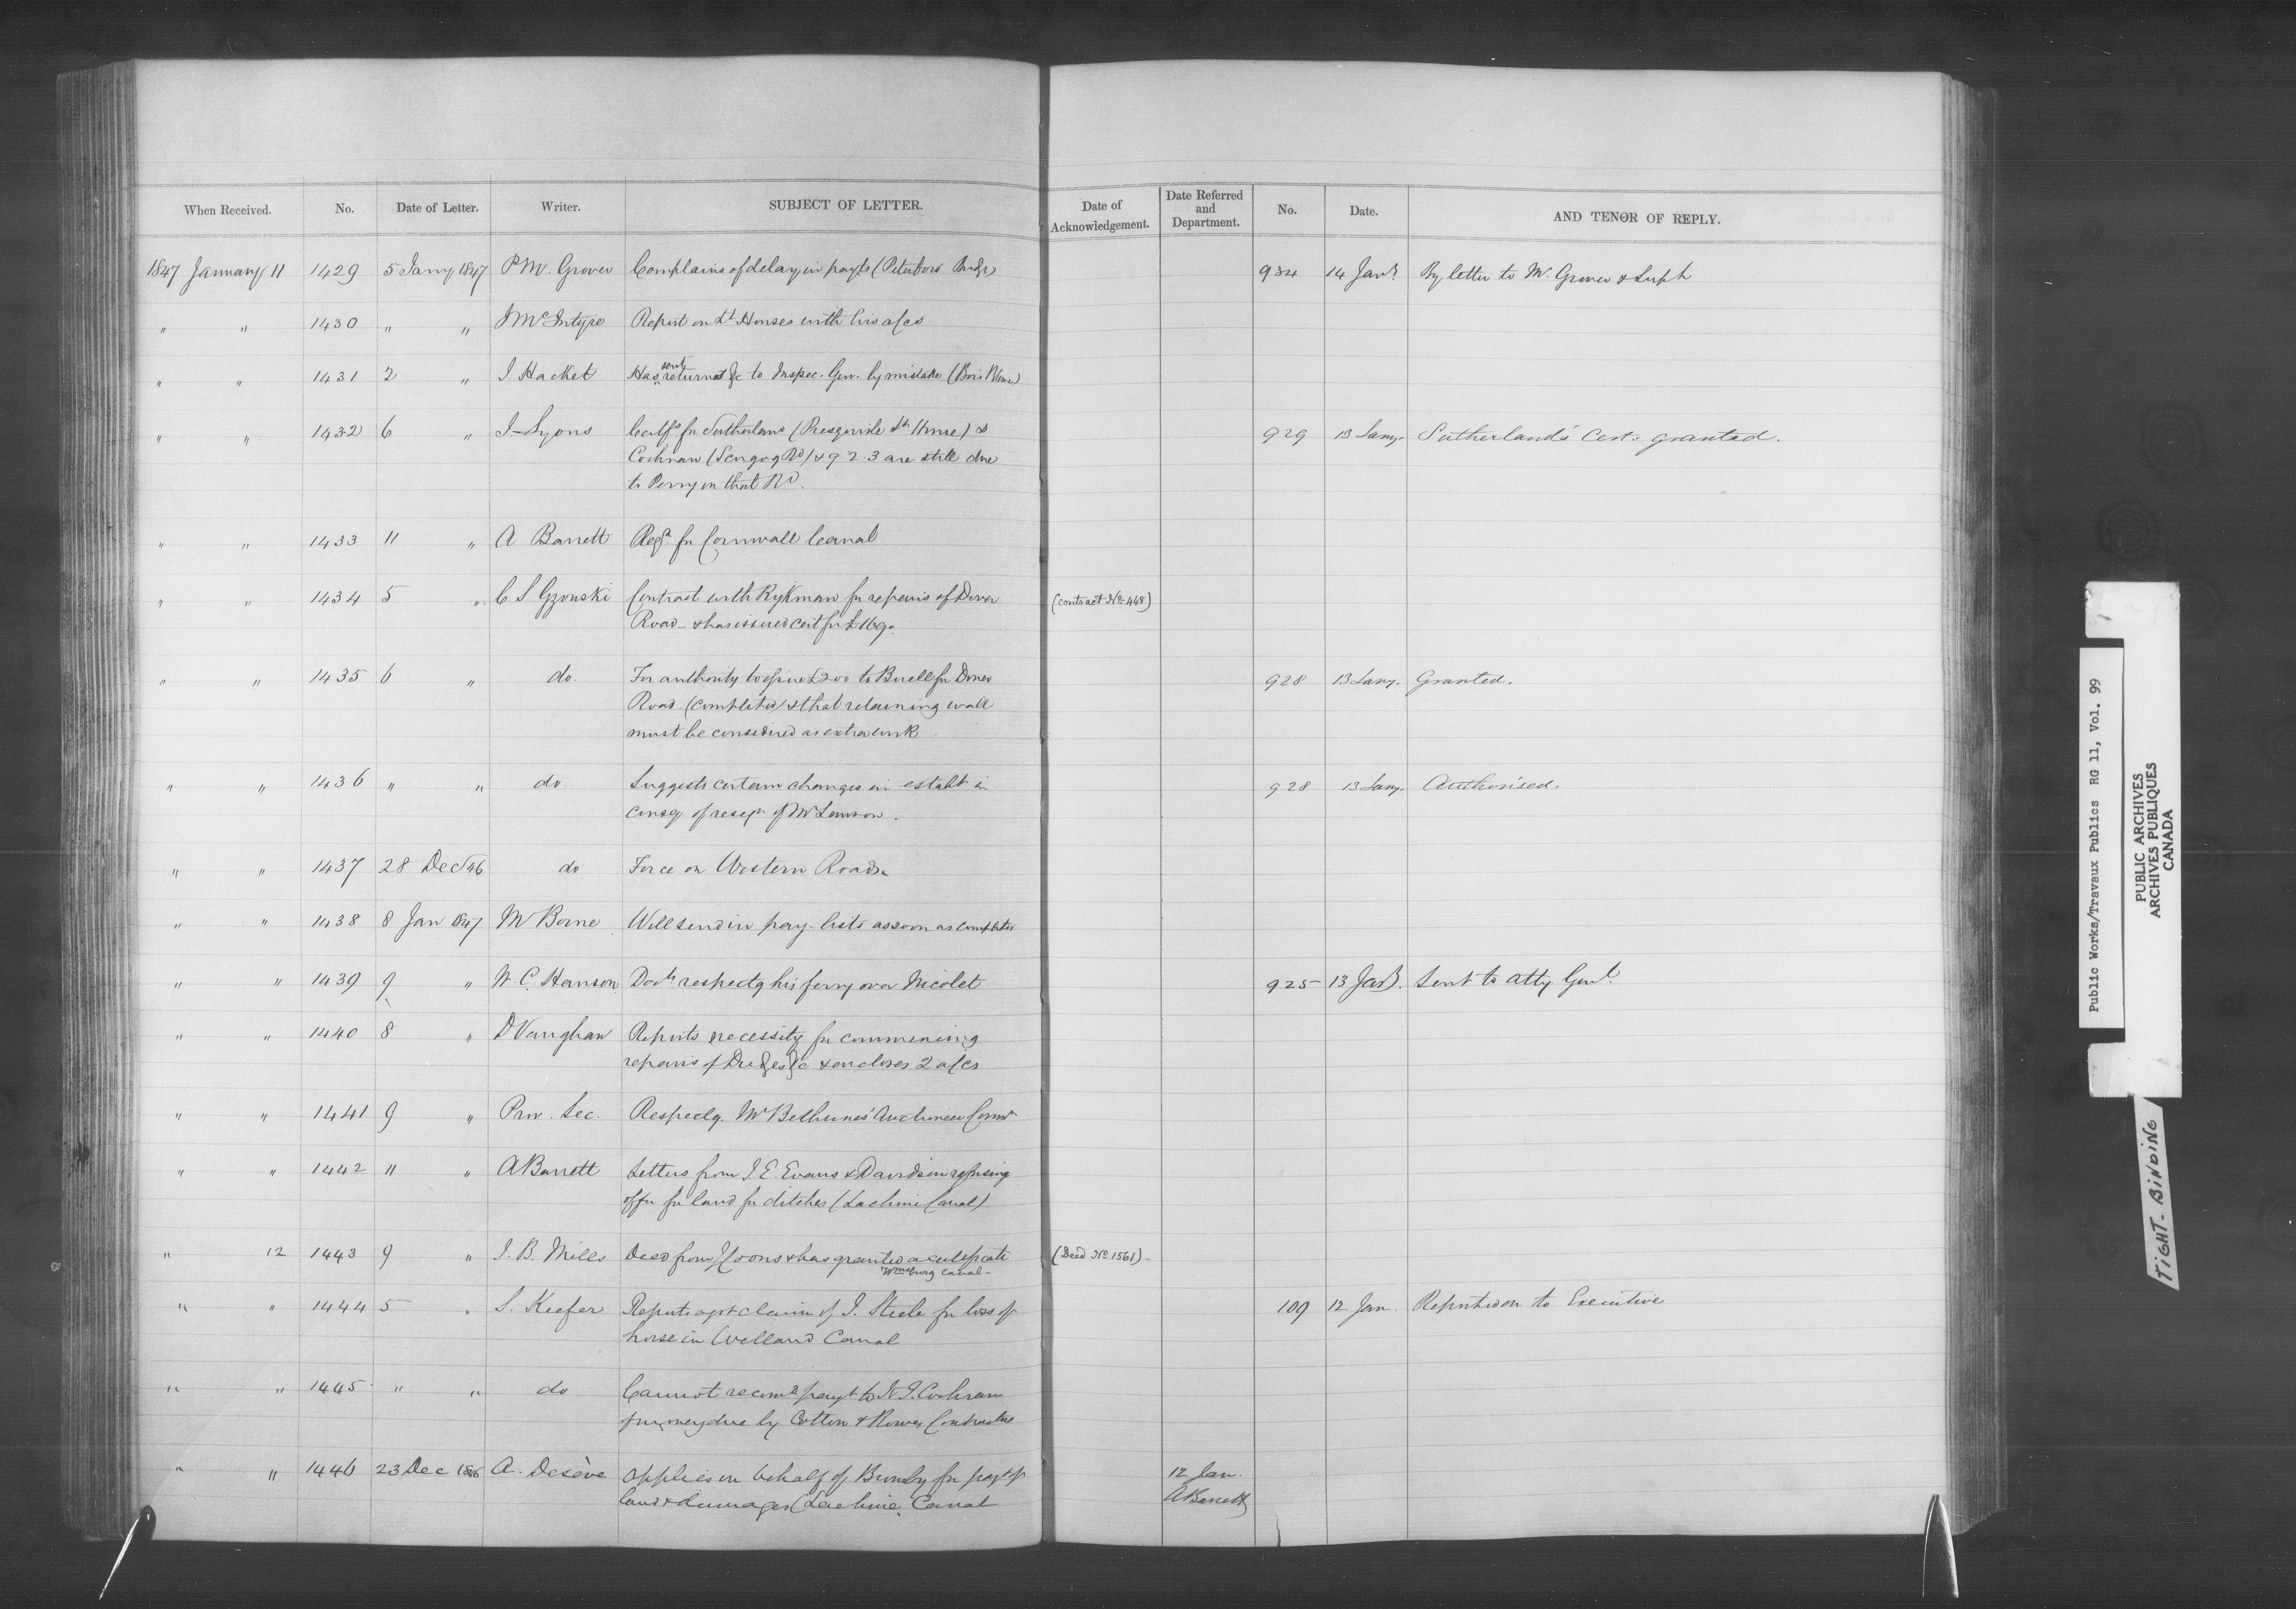 When Received. No. Date of Letter. Writer. SUBJECT OF LETTER. Date of Acknowledgement. Date Referred and Department. No. Date. AND TENOR OF REPLY.
1847 January 11 1429 5 Jany 1847 P M. Grover Complains of delay in payts (Peterboro Bridge) 934 14 Jany By letter to Mr. Grover &
" " 1430 " " J McIntyre Report on Lt Houses with his a/cs
" " 1431 2 " J Hacket Has sent returns &c to Inspec. Gen. by mistake (Bois Blanc)
" " 1432 6 " J Lyons Certfs for Sutherland (Presquisle Lt House) & 929 13 Jany. Sutherland's Cert. granted.
Cochran (Scugog Rd) & 9.2.3 are still due
to Perry on that Rd.
" " 1433 11 " A Barrett Reqn for Cornwall Canal
" " 1434 5 " C S Gzowski Contract with Rykman for repairs of Dover (contract No 448)
Road - & has issued cert for £169.
" " 1435 6 " do. For authority to £200 to Burell for Dover 928 13 Jany. Granted.
Road (completed) & that retaining wall
must be considered as extra work
" " 1436 " " do Suggests certain changes in establt in 928 13 Jany. Authorised.
conseq of resign of Mr Lawson.
" " 1437 28 Dec 46 do Force on Western Roads.
" " 1438 8 Jan 1847 M Borne Will send in pay-lists as soon as completed
" " 1439 9 " W. C. Hanson Docts respectg his ferry over Nicolet 925 13 Jany. Sent to Atty Genl.
" " 1440 8 " D Vaughan Reports necessity for commencing
repairs of Dredges &c & encloses 2 a/cs
" " 1441 9 " Prov. Sec. Respectg. Mr Bethunes' Auctioneer Commn
" " 1442 11 " A Barrett Letters from J. E. Evans & Davidson refusing
offer for land for ditches (Lachine Canal)
" 12 1443 9 " J. B. Mills Deed from J Coons & has granted a certificate (Deed No 1561) -
Wmsburg Canal -
" " 1444 5 " S. Keefer Reports agst claim of J. Steele for loss of 109 12 Jan. Reported on to Executive
horse in Welland Canal
" " 1445 " " do Cannot recomd payt to W. J. Cochran
for money due by Cotton & Rowes Contractors
" " 1446 23 Dec 1846 A. Desève Applies on behalf of for payt of 12 Jan.
land & damages (Lachine Canal A Barrett
Public Works/Travaux Publics RG 11, Vol. 99
PUBLIC ARCHIVES
ARCHIVES PUBLIQUES
CANADA
TIGHT-BINDING